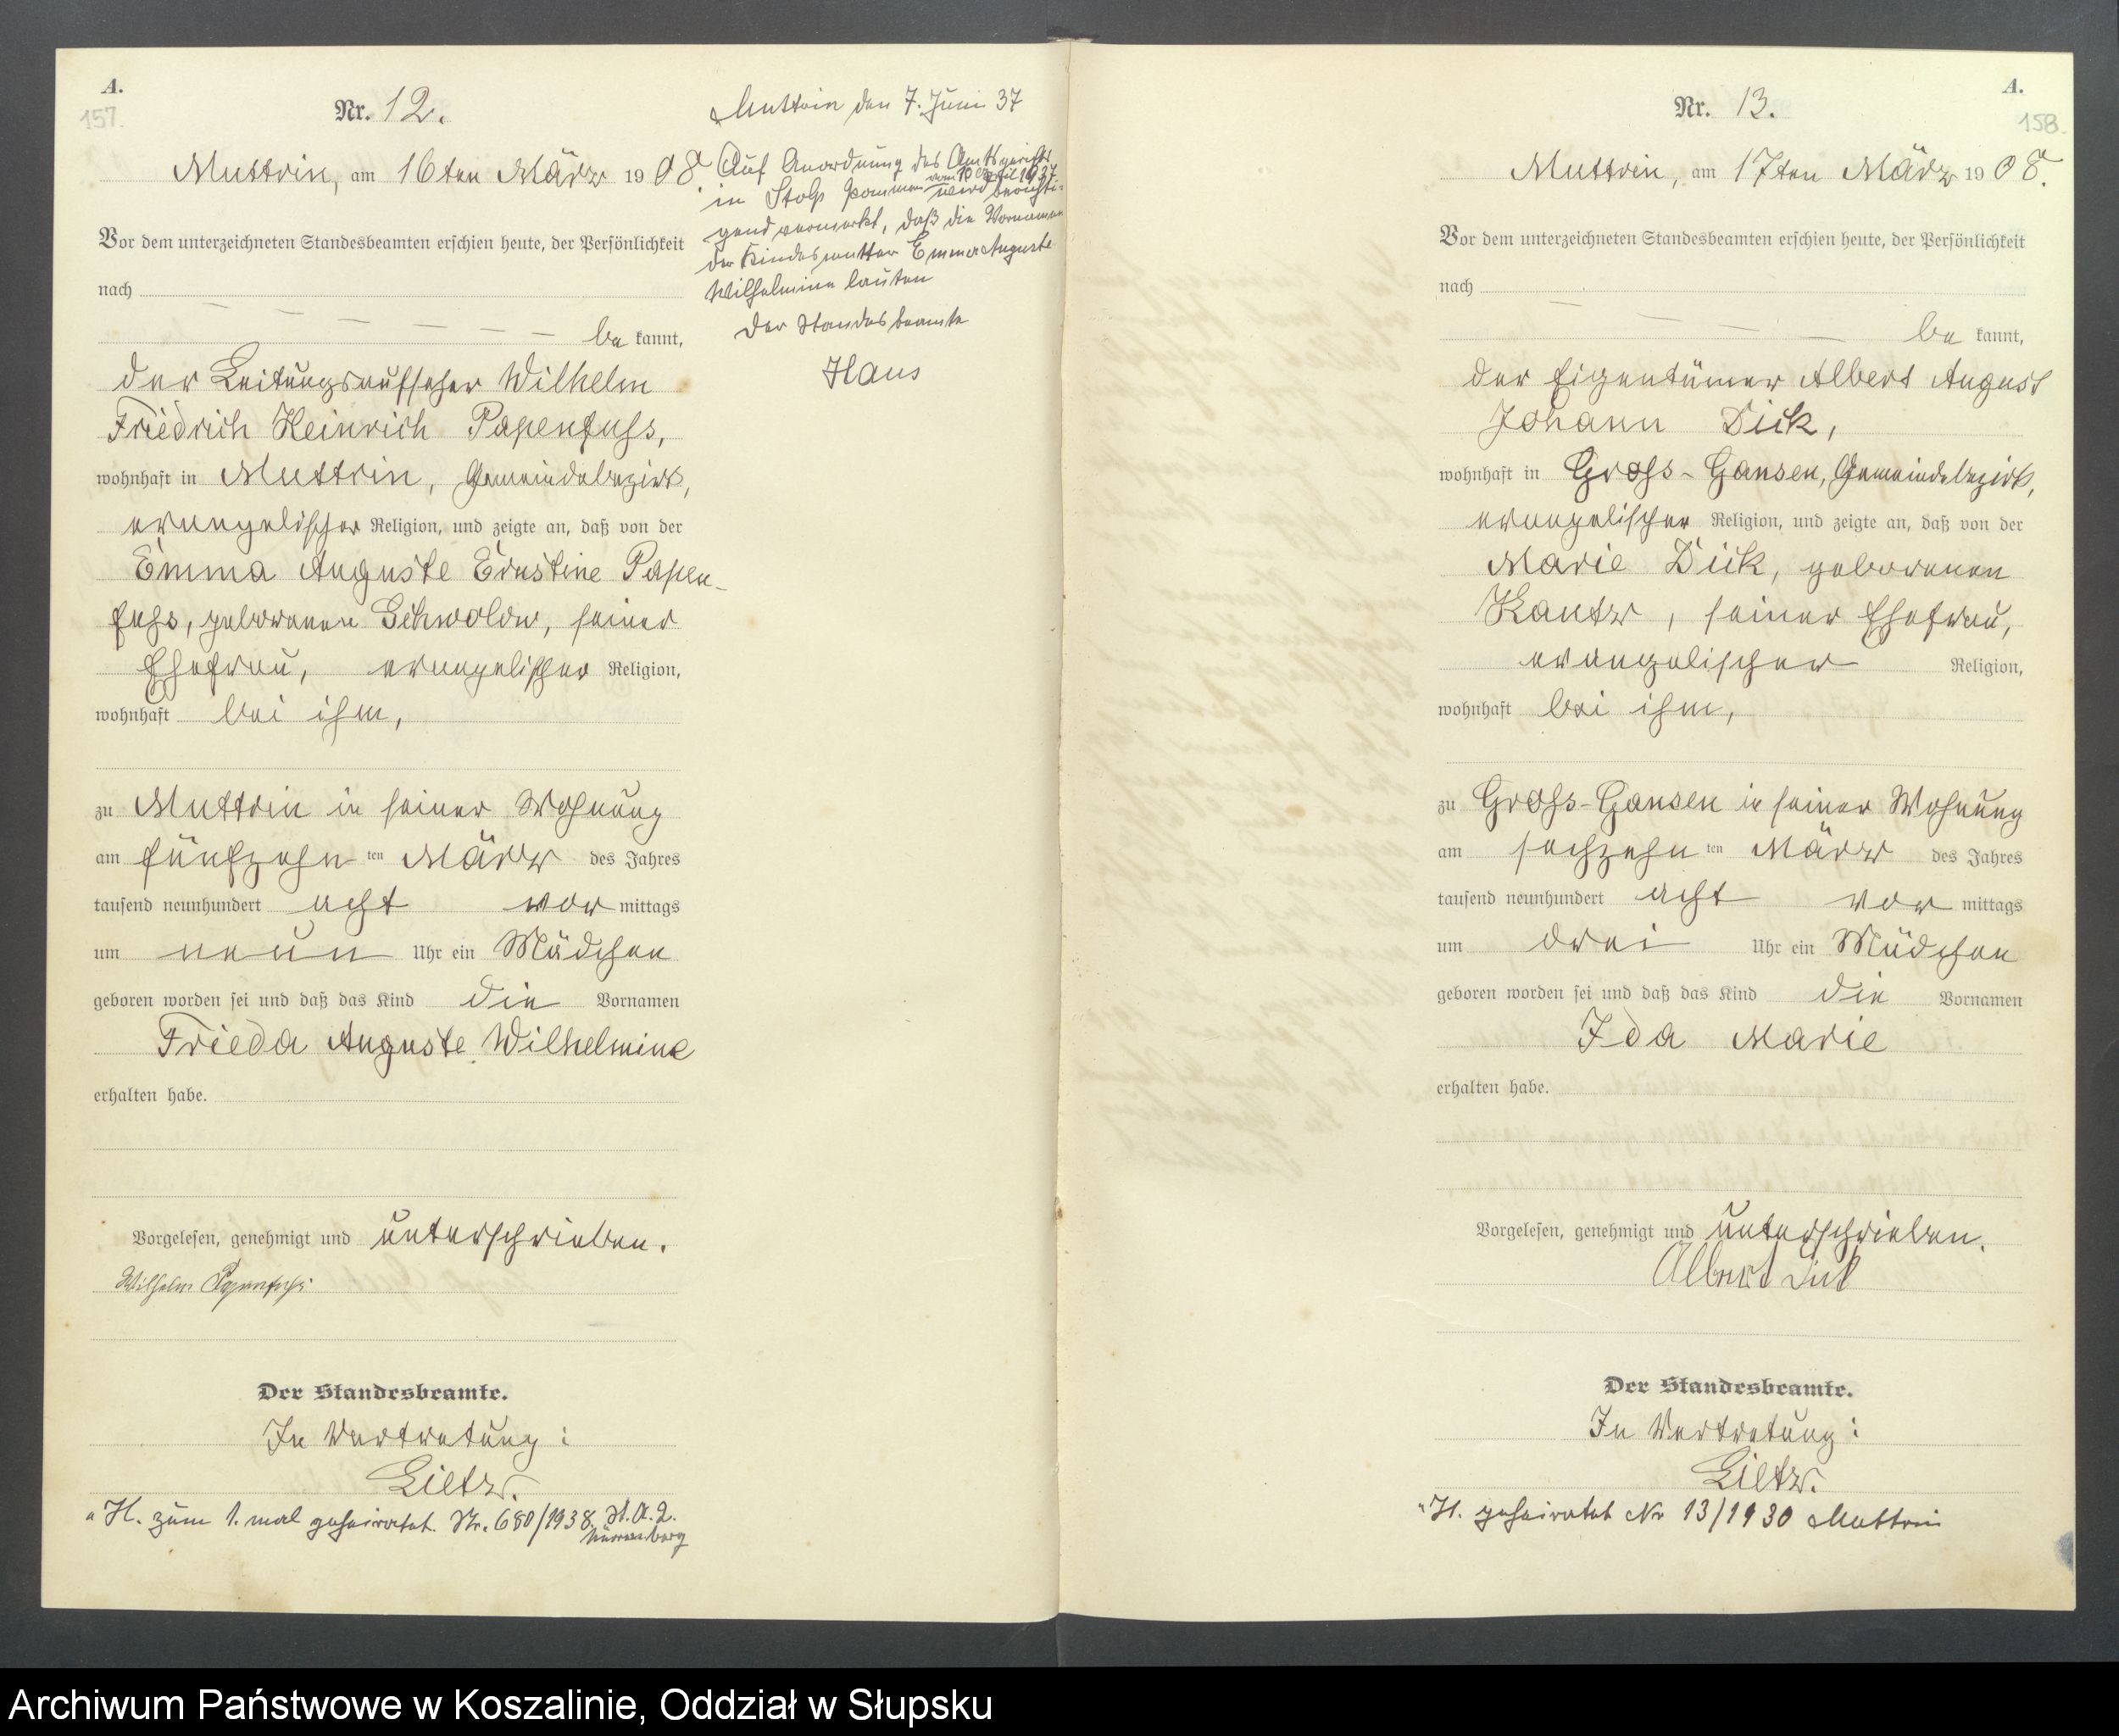 A.
157.
Nr. 12.
Muttrin, am 16ten März 1908.
Vor dem unterzeichneten Standesbeamten erschien heute, der Persönlichkeit
nach
be kannt,
der Leitungsaufseher Wilhelm
Friedrich Heinrich Papenfuss,
wohnhaft in Muttrin, Gemeindebezirk,
evangelischer Religion, und zeigte an, daß von der
Emma Auguste Ernstine Papen-
fuss, geborenen Schwolow, seiner
Ehefrau, evangelischer Religion,
wohnhaft bei ihm,
zu Muttrin in seiner Wohnung
am fünfzehn ten März des Jahres
tausend neunhundert acht vor mittags
um neun Uhr ein Mädchen
geboren worden sei und daß das Kind die Vornamen
Frieda Auguste Wilhelmine
erhalten habe.
Vorgelesen, genehmigt und unterschrieben.
Wilhelm Papenfuss
Der Standesbeamte.
In Vertretung:
Lietz.
H. zum 1. mal geheiratet. Nr. 680/1938. St. A. 2.
Nürnberg
Muttrin den 7. Juni 37
Auf Anordnung des Amtsgerichts
vom 10 April 1937
in Stolp Pommern wird berichti-
gend vermerkt, daß die Vornamen
der Kindesmutter Emma Auguste
Wilhelmine lauten
Der Standesbeamte
Haus
A.
158.
Nr. 13.
Muttrin, am 17ten März 1908.
Vor dem unterzeichneten Standesbeamten erschien heute, der Persönlichkeit
nach
be kannt,
der Eigentümer Albert August
Johann Dick,
wohnhaft in Gross-Gansen, Gemeindebezirk,
evangelischer Religion, und zeigte an, daß von der
Marie Dick, geborenen
Kautz, seiner Ehefrau,
evangelischer Religion,
wohnhaft bei ihm,
zu Gross-Gansen in seiner Wohnung
am sechzehn ten März des Jahres
tausend neunhundert acht vor mittags
um drei Uhr ein Mädchen
geboren worden sei und daß das Kind die Vornamen
Ida Marie
erhalten habe.
Vorgelesen, genehmigt und unterschrieben.
Albert Dick
Der Standesbeamte.
In Vertretung:
Lietz.
H. geheiratet Nr 13/1930 Muttrin
Archiwum Państwowe w Koszalinie, Oddział w Słupsku